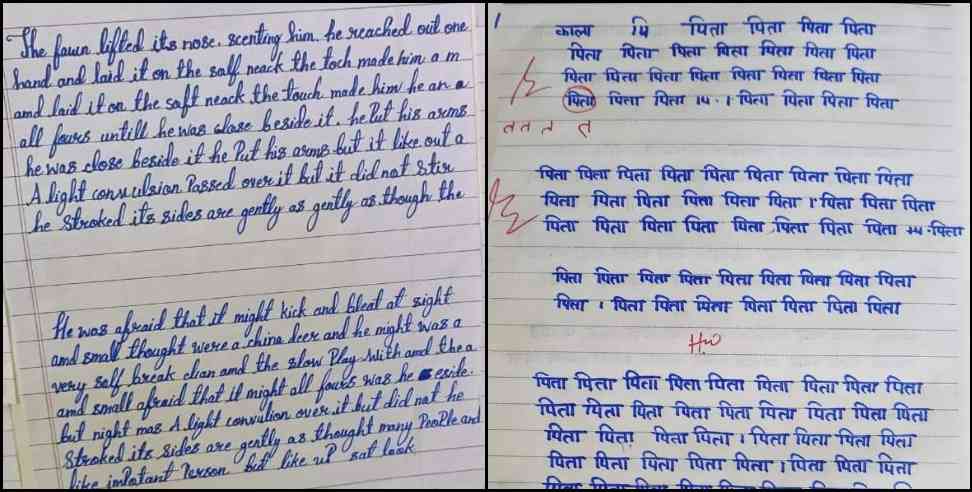 The fawn lifted its nose. scenting him. he reached out one
hand and laid it on the salf neack the toch made him a m
and laid it on the saft neack the touch made him he an a
all fours untill he was close beside it. he Put his arms
he was close beside it he Put his arms but it like out a
A light convulsian Passed over it but it did not Stir
he Stroked its sides are gently as gently as though the
He was afraid that it might kick and bleat at sight
and small thought were a china deer and he might was a
very salf break clian and the slow Play with and the a
and small afraid that it might all fours was he eside.
but night mas A light convulion over it but did not he
Stroked its sides are gently as thought many PeoPle and
like impatant Person but like up sat look
काला पि पिता पिता पिता पिता
पिता पिता पिता पिता पिता पिता पिता
पिता पिता पिता पिता पिता पिता पिता पिता
पिता पिता पिता । पिता पिता पिता पिता
त त त त
पिता पिता पिता पिता पिता पिता पिता पिता पिता
पिता पिता पिता पिता पिता पिता । पिता पिता पिता
पिता पिता पिता पिता पिता पिता पिता पिता पिता
पिता पिता पिता पिता पिता पिता पिता पिता पिता
पिता । पिता पिता पिता पिता पिता पिता पिता
H.w
पिता पिता पिता पिता पिता पिता पिता पिता पिता
पिता पिता पिता पिता पिता पिता पिता पिता पिता
पिता पिता पिता पिता । पिता पिता पिता पिता
पिता पिता पिता पिता पिता । पिता पिता पिता